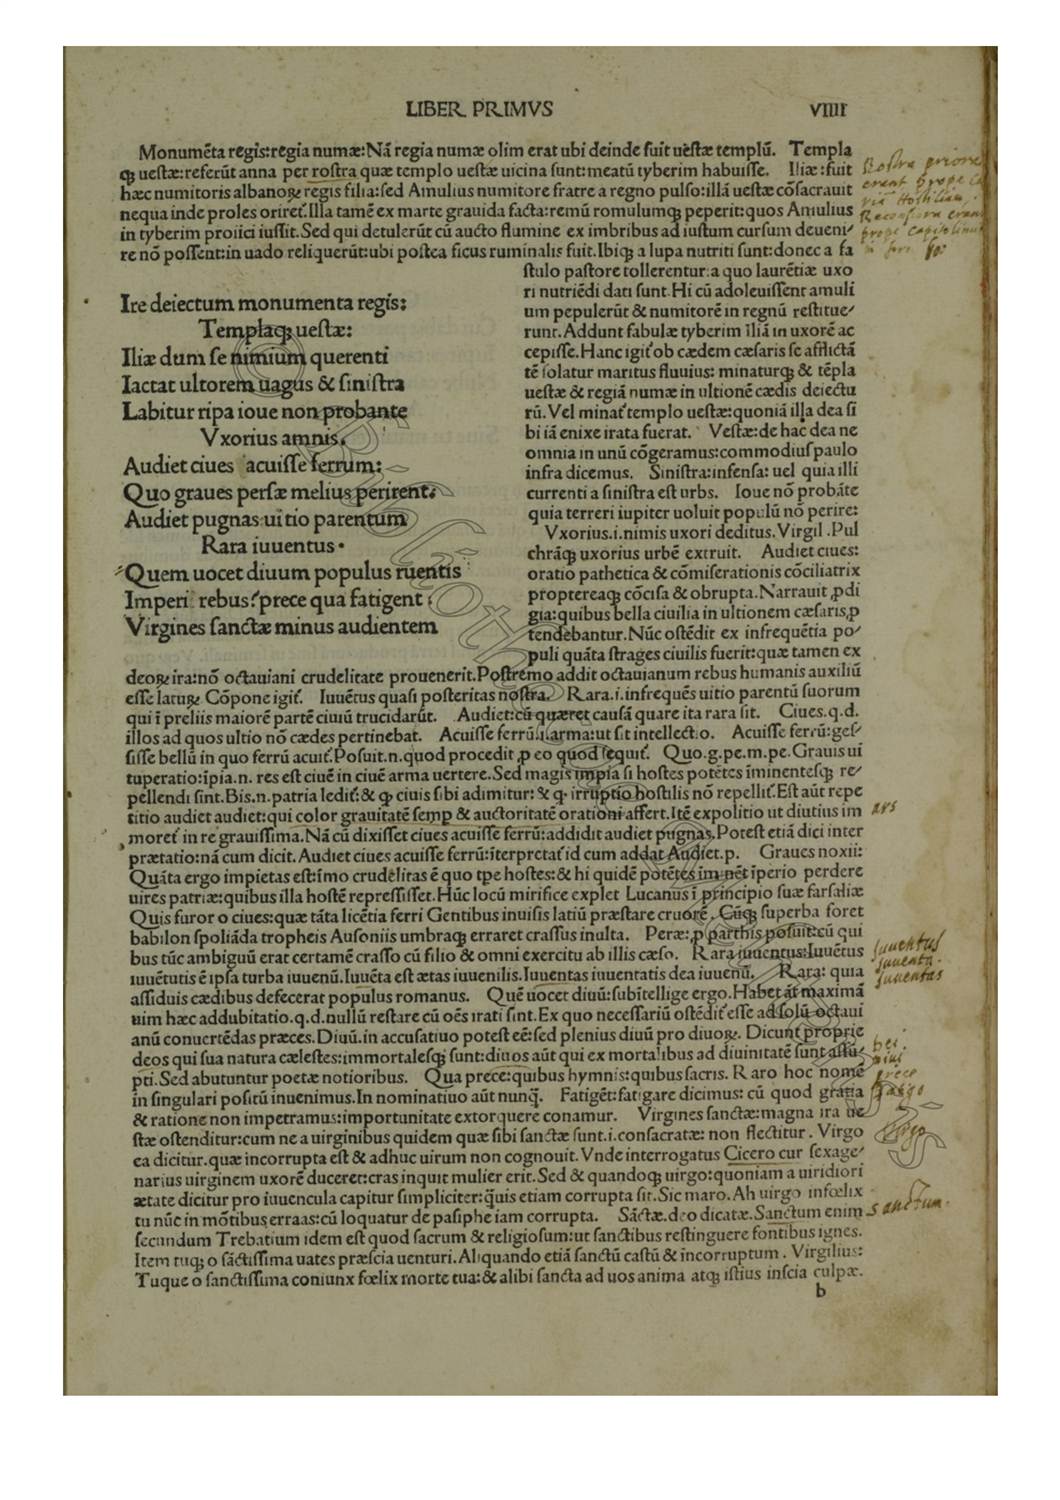 LIBER PRIMVS
VIIII
Monumēta regis:regia numæ:Nā regia numæ olim erat ubi deinde fuit uestæ templū. Templa
qꝫ uestæ:referūt anna per rostra quæ templo uestæ uicina sunt:meatū tyberim habuisse. Iliæ:fuit
hæc numitoris albanoꝝ regis filia:sed Amulius numitore fratre a regno pulso:illā uestæ cōsacrauit
nequa inde proles oriret᷑.Illa tamē ex marte grauida facta:remū romulumqꝫ peperit:quos Amulius
in tyberim proiici iussit.Sed qui detulerūt cū aucto flumine ex imbribus ad iustum cursum deueni/
re nō possent:in uado reliquerūt:ubi postea ficus ruminalis fuit.Ibiqꝫ a lupa nutriti sunt:donec a fa
stulo pastore tollerentur:a quo laurētiæ uxo
ri nutriēdi dati sunt.Hi cū adoleuissent amuli
um pepulerūt & numitorē in regnū restitue/
runt.Addunt fabulæ tyberim iliā in uxorē ac
cepisse.Hanc igit᷑ ob cædem cæsaris se afflictā
tē solatur maritus fluuius: minaturqꝫ & tēpla
uestæ & regiā numæ in ultionē cædis deiectu
rū.Vel minat᷑ templo uestæ:quoniā illa dea si
bi iā enixe irata fuerat. Vestæ:de hac dea ne
omnia in unū cōgeramus:commodius paulo
infra dicemus. Sinistra:infensa: uel quia illi
currenti a sinistra est urbs. Ioue nō probāte
quia terreri iupiter uoluit populū nō perire:
Vxorius.i.nimis uxori deditus.Virgil.Pul
chrāqꝫ uxorius urbē extruit. Audiet ciues:
oratio pathetica & cōmiserationis cōciliatrix
proptereaqꝫ cōcisa & obrupta.Narrauit ꝓdi
gia:quibus bella ciuilia in ultionem cæsaris,ꝓ
tendebantur.Nūc ostēdit ex infrequētia po/
puli quāta strages ciuilis fuerit:quæ tamen ex
Ire deiectum monumenta regis:
Templaqꝫ uestæ:
Iliæ dum se nimium querenti
Iactat ultorem uagus & sinistra
Labitur ripa ioue non probante
Vxorius amnis.
Audiet ciues acuisse ferrum:
Quo graues persæ melius perirent:
Audiet pugnas uitio parentum
Rara iuuentus.
Quem uocet diuum populus ruentis
Imperi rebus?prece qua fatigent
Virgines sanctæ minus audientem
deoꝝ ira:nō octauiani crudelitate prouenerit.Postremo addit octauianum rebus humanis auxiliū
esse latuꝝ Cōpone igit᷑. Iuuētus quasi posteritas nostra. Rara.i.infrequēs uitio parentū suorum
qui ī preliis maiorē partē ciuiū trucidarūt. Audiet:cū quæret causā quare ita rara sit. Ciues.q.d.
illos ad quos ultio nō cædes pertinebat. Acuisse ferrū.i.arma:ut sit intellectio. Acuisse ferrū:ges/
sisse bellū in quo ferrū acuit᷑.Posuit.n.quod procedit ꝓ eo quod sequit᷑. Quo.g.pe.m.pe.Grauis ui
tuperatio:īpia.n. res est ciuē in ciuē arma uertere.Sed magis impia si hostes potētes īminentesqꝫ re/
pellendi sint.Bis.n.patria ledit᷑: & qꝫ ciuis sibi adimitur: & qꝫ irruptio hostilis nō repellit᷑.Est aūt repe
titio audiet audiet:qui color grauitatē semp & auctoritatē orationi affert.Itē expolitio ut diutius im
moret᷑ in re grauissima.Nā cū dixisset ciues acuisse ferrū:addidit audiet pugnas.Potest etiā dici inter
prætatio:nā cum dicit.Audiet ciues acuisse ferrū:īterpretat᷑ id cum addat Audiet.p. Graues noxii:
Quāta ergo impietas est:īmo crudelitas ē quo tpe hostes:& hi quidē potētes imminēt īperio perdere
uires patriæ:quibus illa hostē repressisset.Hūc locū mirifice explet Lucanus ī principio suæ farsaliæ
Quis furor o ciues:quæ tāta licētia ferri Gentibus inuisis latiū præstare cruorē.Cūqꝫ superba foret
babilon spoliāda tropheis Ausoniis umbraqꝫ erraret crassus inulta. Peræ:ꝓ parthis posuit:cū qui
bus tūc ambiguū erat certamē crasso cū filio & omni exercitu ab illis cæso. Rara iuuentus:Iuuētus
iuuētutis ē ipsa turba iuuenū.Iuuēta est ætas iuuenilis.Iuuentas iuuentatis dea iuuenū. Rara: quia
assiduis cædibus defecerat populus romanus. Quē uocet diuū:subītellige ergo.Habet āt maximā
uim hæc addubitatio.q.d.nullū restare cū oēs irati sint.Ex quo necessariū ostēdit᷑ esse ad solū octaui
anū conuertēdas præces.Diuū.in accusatiuo potest eē:sed plenius diuū pro diuoꝝ. Dicunt proprie
deos qui sua natura cælestes:immortalesqꝫ sunt:diuos aūt qui ex mortalibus ad diuinitatē sunt assū/
pti.Sed abutuntur poetæ notioribus. Qua prece:quibus hymnis:quibus sacris. Raro hoc nomē
in singulari positū inuenimus.In nominatiuo aūt nunqꝫ. Fatigēt:fatigare dicimus: cū quod gratia
& ratione non impetramus:importunitate extorquere conamur. Virgines sanctæ:magna ira ue
stæ ostenditur:cum ne a uirginibus quidem quæ sibi sanctæ sunt.i.consacratæ: non flectitur. Virgo
ea dicitur.quæ incorrupta est & adhuc uirum non cognouit.Vnde interrogatus Cicero cur sexage/
narius uirginem uxorē duceret:cras inquit mulier erit.Sed & quandoqꝫ uirgo:quoniam a uiridiori
ætate dicitur pro iuuencula capitur simpliciter:quis etiam corrupta sit.Sic maro.Ah uirgo infœlix
tu nūc in mōtibus erraas:cū loquatur de pasiphe iam corrupta. Sāctæ.deo dicatæ.Sanctum enim
secundum Trebatium idem est quod sacrum & religiosum:ut sanctibus restinguere fontibus ignes.
Item tuqꝫ o sāctissima uates præscia uenturi.Aliquando etiā sanctū castū & incorruptum. Virgilius:
Tuque o sanctissima coniunx fœlix morte tua:& alibi sancta ad uos anima atqꝫ istius inscia culpæ.
b
ars
iuuentus
iuuenta.
iuuentas
prece
fatigo
Sanctum.